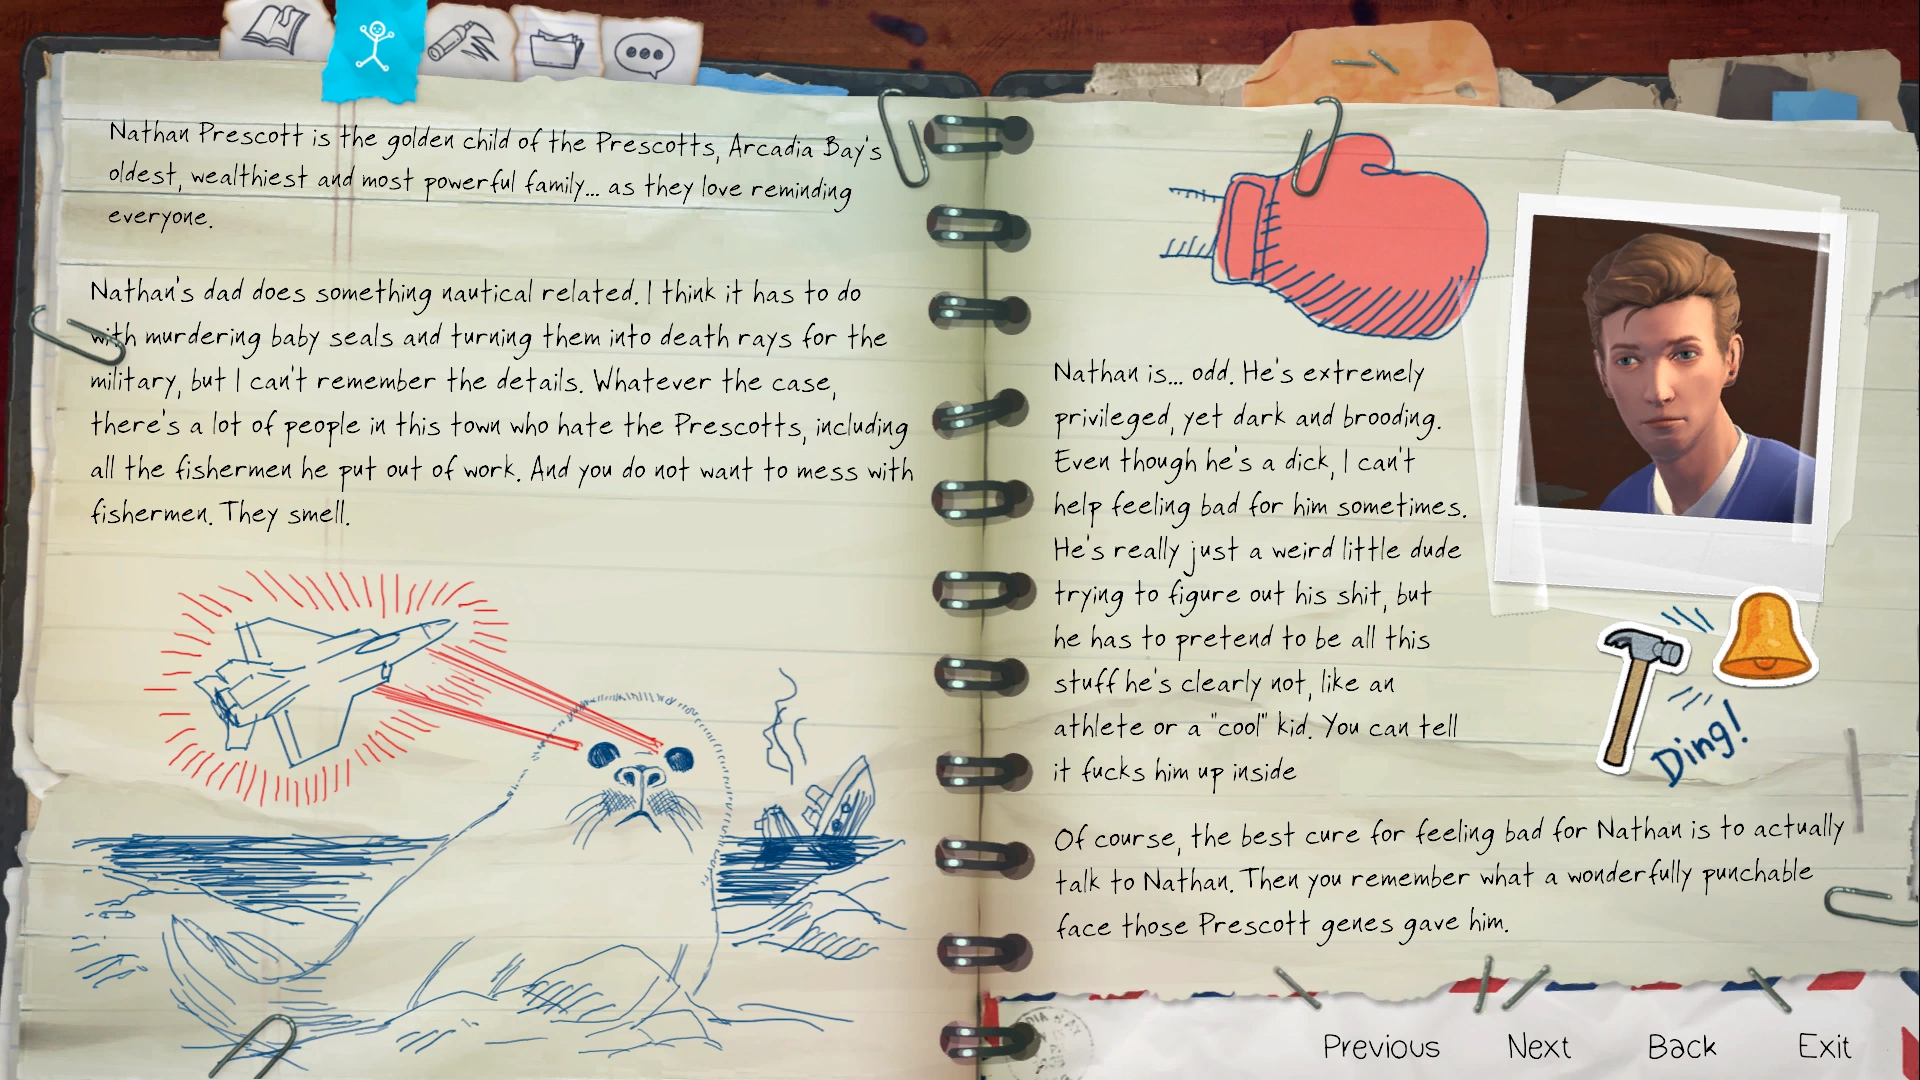 Nathan Prescott is the golden child of the Prescotts, Arcadia Bay's
oldest, wealthiest and most powerful family... as they love reminding
everyone.
Nathan's dad does something nautical related. I think it has to do
with murdering baby seals and turning them into death rays for the
military, but I can't remember the details. Whatever the case,
there's a lot of people in this town who hate the Prescotts, including
all the fishermen he put out of work. And you do not want to mess with
fishermen. They smell.
Nathan is... odd. He's extremely
privileged, yet dark and brooding.
Even though he's a dick, I can't
help feeling bad for him sometimes.
He's really just a weird little dude
trying to figure out his shit, but
he has to pretend to be all this
stuff he's clearly not, like an
athlete or a "cool" kid. You can tell
it fucks him up inside
Ding!
Of course, the best cure for feeling bad for Nathan is to actually
talk to Nathan. Then you remember what a wonderfully punchable
face those Prescott genes gave him.
Previous Next Back Exit